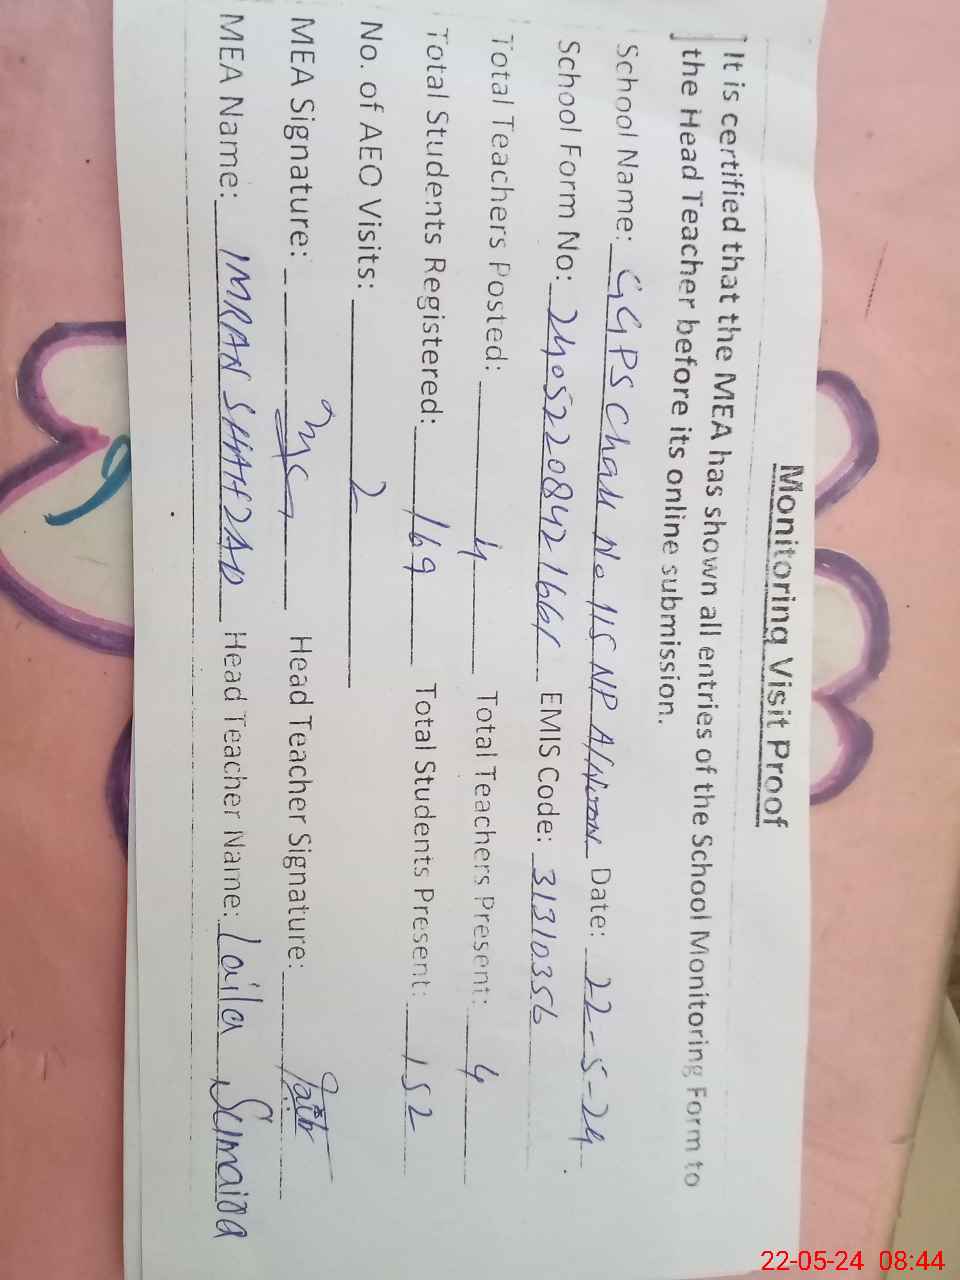 Monitoring Visit Proof
It is certified that the MEA has shown all entries of the School Monitoring Form to
the Head Teacher before its online submission.
School Name: GGPS Chak No 115 NP A/Woon Date: 22-5-24
School Form No: 2405220842 1661 EMIS Code: 31310356
Total Teachers Posted: 4 Total Teachers Present: 4
Total Students Registered: 169 Total Students Present: 152
No. of AEO Visits: 2
MEA Signature: Head Teacher Signature:
MEA Name: IMRAN SHAHZAD Head Teacher Name: Laila Sumaira
22-05-24 08:44